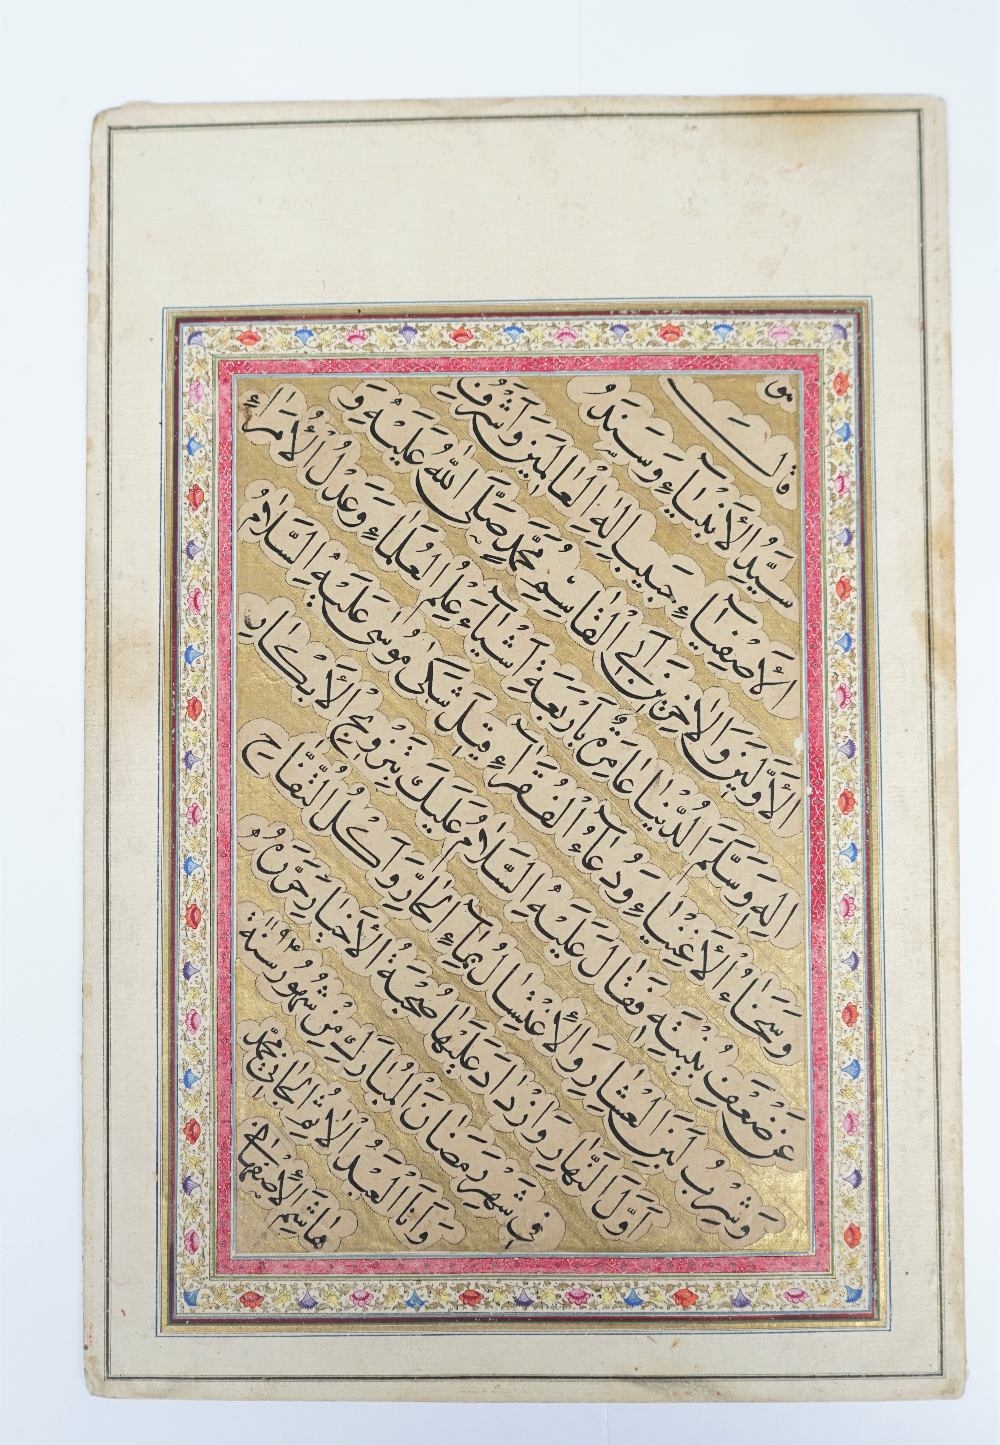 هو
قال
سَيِّدُ الْأَنْبِيَآءِ وَسَنَدُ
الْأَصْفِيَآءِ حَبِيبِ اِلٰهِ الْعَالَمِينَ وَاَشْرَفِ
الْأَوَّلِينَ وَالْاٰخِرِينَ اَبِي الْقَاسِمِ مُحَمَّدٍ صَلَّى اللّٰهُ عَلَيْهِ وَ
اٰلِهِ وَسَلَّمَ الدُّنْيَا عَامِرَةٌ بِاَرْبَعَةِ اَشْيَآءَ عِلْمُ الْعُلَمَآءِ وَعَدْلُ الْأُمَرَآءِ
وَسَخَآءُ الْأَغْنِيَآءِ وَدُعَآءُ الْفُقَرَآءِ قِيلَ شَكٰى مُوسٰى عَلَيْهِ السَّلَامُ
عَنْ ضَعْفِ بُنْيَتِهِ فَقَالَ عَلَيْهِ السَّلَامُ عَلَيْكَ بِتَزْوِيجِ الْأَبْكَارِ
وَشُرْبِ لَبَنِ الْعِشَارِ وَالْاِغْتِسَالُ بِمَآءِ الْحَارِّ وَاَكْلُ التُّفَّاحِ
اَوَّلَ النَّهَارِ وَازْدَادَ عَلَيْهَا صُحْبَةُ الْأَخْيَارِ حَرَّرَهُ
فِي شَهْرِ رَمَضَانَ الْمُبَارَكِ مِنْ شُهُورِ سَنَةِ ١١٩٤
وَاَنَا الْعَبْدُ الْاٰثِمُ الْجَانِي مُحَمَّد
هَاشِمُ الْاِصْفَهَانِي